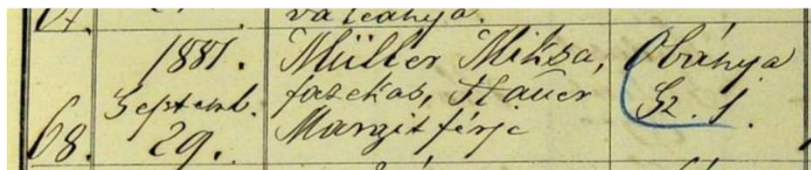 67.
váraljá.
68.
1881.
Septemb.
29.
Müller Miksa,
fazekas, Hauer
Margit férje
Óbánya
Sz. 1.